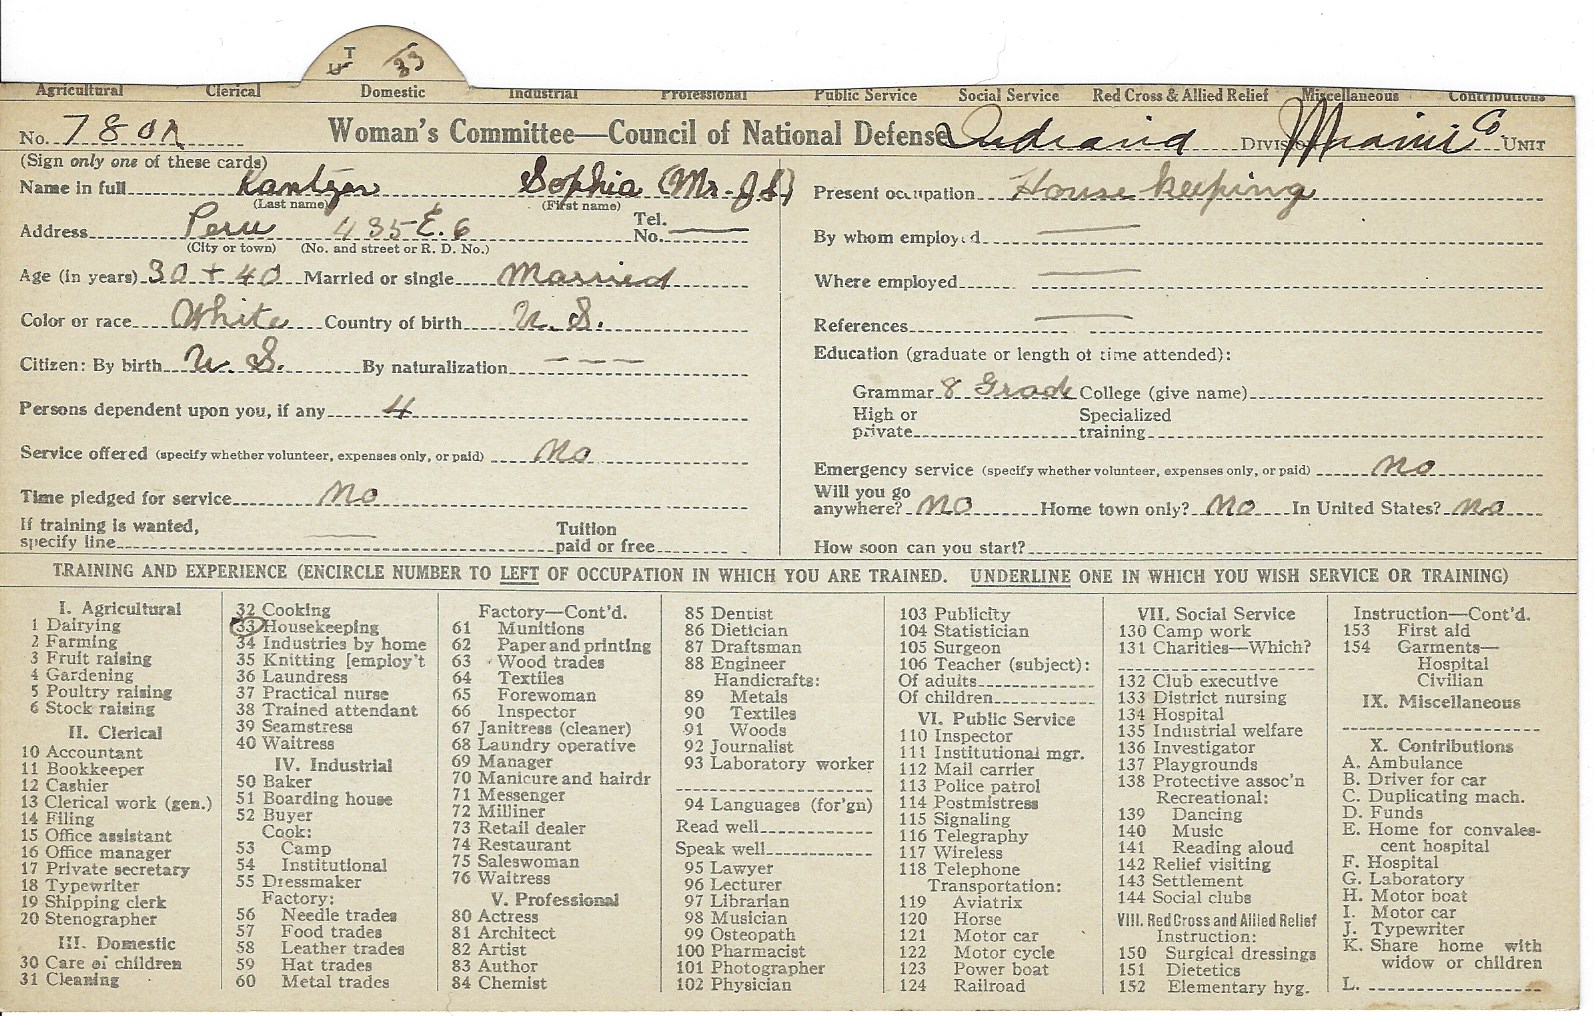 T 33
Agricultural Clerical Domestic Industrial Professional Public Service Social Service Red Cross & Allied Relief Miscellaneous Contributions
No. 780 Woman's Committee—Council of National Defense Indiana Division Miami Co. Unit
(Sign only one of these cards)
Name in full Sophia (Mr. J.S.)
(Last name) (First name)
Address Peru 435 E. 6 Tel. No. —
(City or town) (No. and street or R. D. No.)
Age (in years) 30 + 40 Married or single Married
Color or race White Country of birth U. S.
Citizen: By birth U. S. By naturalization — — —
Persons dependent upon you, if any 4
Service offered (specify whether volunteer, expenses only, or paid) no
Time pledged for service no
If training is wanted,
specify line — Tuition paid or free
Present occupation House keeping
By whom employed —
Where employed —
References —
Education (graduate or length of time attended):
Grammar 8 Grade College (give name)
High or private Specialized training
Emergency service (specify whether volunteer, expenses only, or paid) no
Will you go anywhere? no Home town only? no In United States? no
How soon can you start?
TRAINING AND EXPERIENCE (ENCIRCLE NUMBER TO LEFT OF OCCUPATION IN WHICH YOU ARE TRAINED. UNDERLINE ONE IN WHICH YOU WISH SERVICE OR TRAINING)
I. Agricultural
1 Dairying
2 Farming
3 Fruit raising
4 Gardening
5 Poultry raising
6 Stock raising
II. Clerical
10 Accountant
11 Bookkeeper
12 Cashier
13 Clerical work (gen.)
14 Filing
15 Office assistant
16 Office manager
17 Private secretary
18 Typewriter
19 Shipping clerk
20 Stenographer
III. Domestic
30 Care of children
31 Cleaning
32 Cooking
33 Housekeeping
34 Industries by home
35 Knitting [employ't
36 Laundress
37 Practical nurse
38 Trained attendant
39 Seamstress
40 Waitress
IV. Industrial
50 Baker
51 Boarding house
52 Buyer
Cook:
53 Camp
54 Institutional
55 Dressmaker
Factory:
56 Needle trades
57 Food trades
58 Leather trades
59 Hat trades
60 Metal trades
Factory—Cont'd.
61 Munitions
62 Paper and printing
63 Wood trades
64 Textiles
65 Forewoman
66 Inspector
67 Janitress (cleaner)
68 Laundry operative
69 Manager
70 Manicure and hairdr
71 Messenger
72 Milliner
73 Retail dealer
74 Restaurant
75 Saleswoman
76 Waitress
V. Professional
80 Actress
81 Architect
82 Artist
83 Author
84 Chemist
85 Dentist
86 Dietician
87 Draftsman
88 Engineer
Handicrafts:
89 Metals
90 Textiles
91 Woods
92 Journalist
93 Laboratory worker
94 Languages (for'gn)
Read well
Speak well
95 Lawyer
96 Lecturer
97 Librarian
98 Musician
99 Osteopath
100 Pharmacist
101 Photographer
102 Physician
103 Publicity
104 Statistician
105 Surgeon
106 Teacher (subject):
Of adults
Of children
VI. Public Service
110 Inspector
111 Institutional mgr.
112 Mail carrier
113 Police patrol
114 Postmistress
115 Signaling
116 Telegraphy
117 Wireless
118 Telephone
Transportation:
119 Aviatrix
120 Horse
121 Motor car
122 Motor cycle
123 Power boat
124 Railroad
VII. Social Service
130 Camp work
131 Charities—Which?
132 Club executive
133 District nursing
134 Hospital
135 Industrial welfare
136 Investigator
137 Playgrounds
138 Protective assoc'n
Recreational:
139 Dancing
140 Music
141 Reading aloud
142 Relief visiting
143 Settlement
144 Social clubs
VIII. Red Cross and Allied Relief
Instruction:
150 Surgical dressings
151 Dietetics
152 Elementary hyg.
Instruction—Cont'd.
153 First aid
154 Garments—
Hospital
Civilian
IX. Miscellaneous
X. Contributions
A. Ambulance
B. Driver for car
C. Duplicating mach.
D. Funds
E. Home for convales-
cent hospital
F. Hospital
G. Laboratory
H. Motor boat
I. Motor car
J. Typewriter
K. Share home with
widow or children
L.